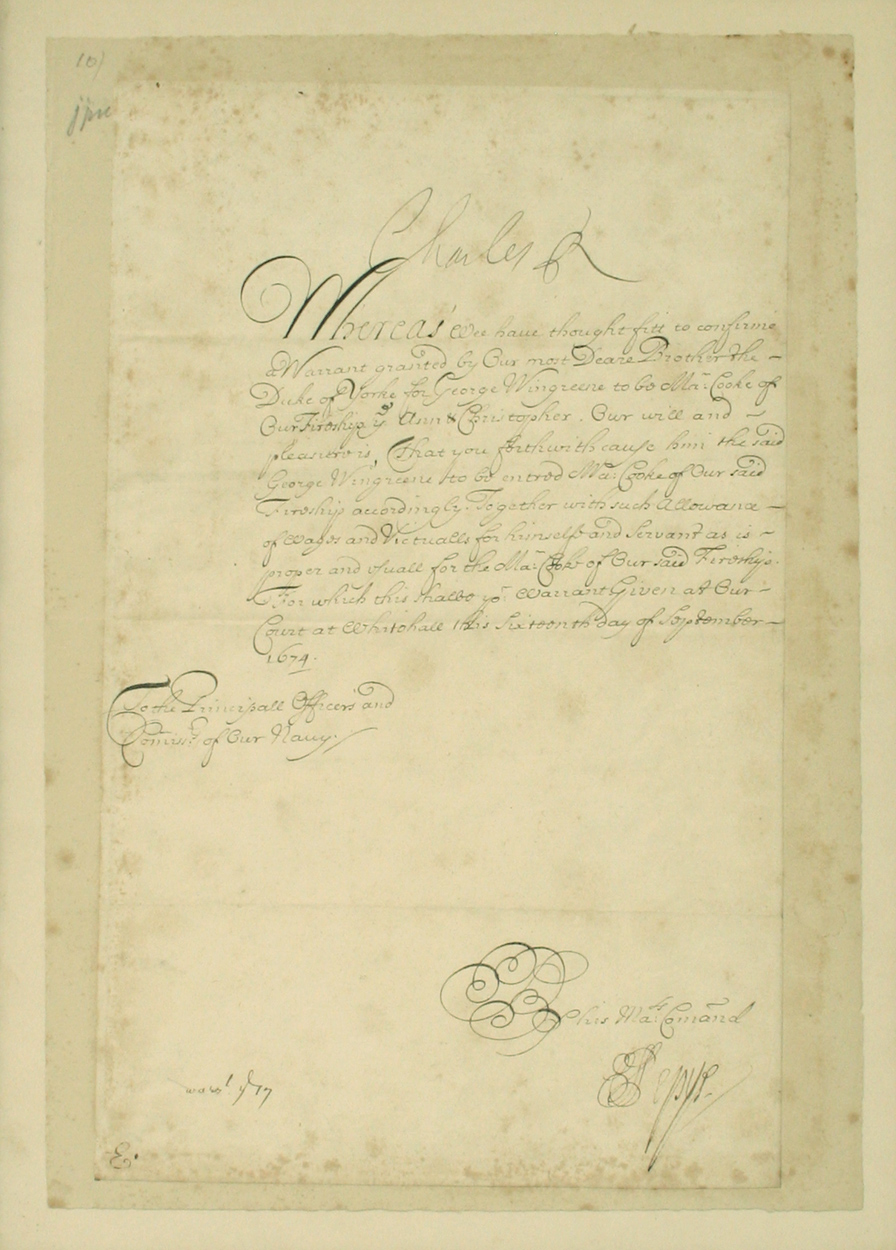 10)
Charles R
Whereas Wee have thought fitt to confirme
a Warrant granted by Our most Deare Brother the
Duke of Yorke for George Wingreene to be Ma.r Cooke of
Our Fireship ye Ann & Christopher. Our will and
pleasure is, That you forthwith cause him the said
George Wingreene to be entred Ma.r Cooke of Our said
Fireship accordingly. Together with such Allowance
of Wages and Victualls for himselfe and Servant as is
proper and usuall for the Ma.r Cooke of Our said Fireship.
For which this shalbe yo.r Warrant Given at Our
Court at Whitehall this Sixteenth day of September
1674.
To the Principall Officers and
Com̄is.rs of Our Navy.
By his Ma.ts Com̄and
SPepys.
E.